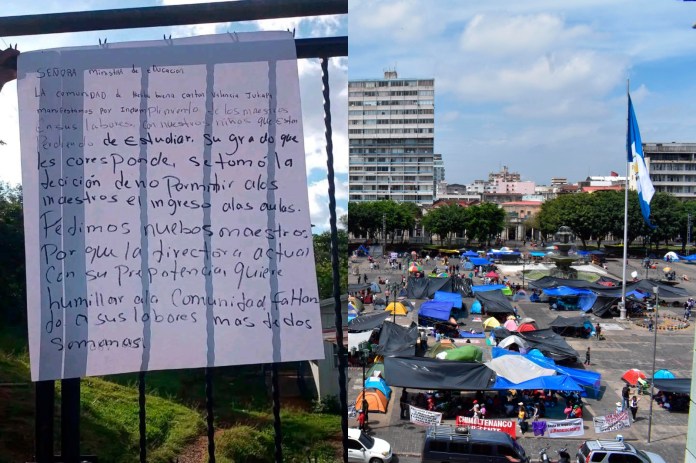 SEÑORA Ministra de educación
LA comunidad de Buena cantón Valencia Jutiapa
manifestamos por Incumplimiento de los maestros
en sus labores con nuestros niños que estan
Perdiendo de estudiar. Su grado que
les corresponde, se tomó la
decición de no Permitir a los
maestros el ingreso a las aulas.
Pedimos nuebos maestros
Por que la directora actual
Con su Prepotencia, quiere
humillar a la Comunidad, faltan
do a sus labores mas de dos
semanas.
CHIMALTENANGO